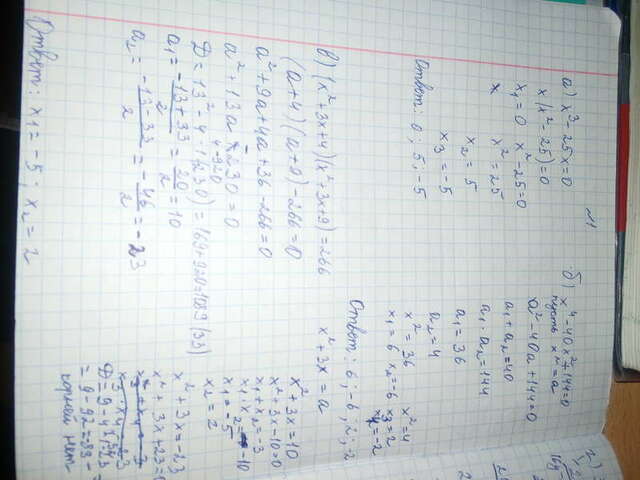 №1
а) x³-25x=0
x(x²-25)=0
x₁=0 x²-25=0
x²=25
x₂=5
x₃=-5
Ответ: 0; 5; -5
б) x⁴-40x²+144=0
пусть x²=a
a²-40a+144=0
a₁+a₂=40
a₁·a₂=144
a₁=36
a₂=4
x²=36 x²=4
x₁=6 x₂=-6 x₃=2
x₄=-2
Ответ: 6; -6; 2; -2
в) (x²+3x+4)(x²+3x+9)=266
x²+3x=a
(a+4)(a+9)-266=0
a²+9a+4a+36-266=0
a²+13a-230=0
Д=13²-4·(-230)=169+920=1089(33)
a₁=-13+33/2=20/2=10
a₂=-13-33/2=-46/2=-23
x²+3x=10
x²+3x-10=0
x₁+x₂=-3
x₁·x₂=-10
x₁=-5
x₂=2
x²+3x=-23
x²+3x+23=0
=9-92=-83-
корней нет
Ответ: x₁=-5; x₂=2